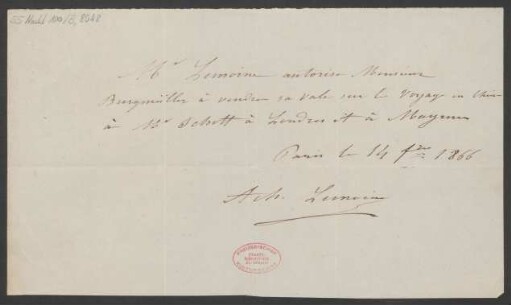 55 Nachl 100/B, 
Mr Lemoine autorise Monsieur
Burgmüller à vendre sa Valse sur le Voyage en Chine
à Mr Schott à Londres et à Mayence
Paris le 14 1866
Ach. Lemoine